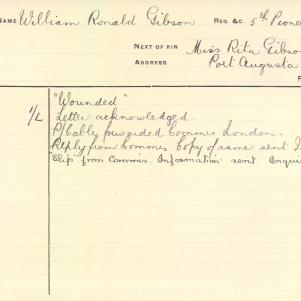 NAME William Ronald Gibson REG. &C. 5th Pioneer
NEXT OF KIN Miss Rita Gibson
ADDRESS Port Augusta
"Wounded"
1/L Letter acknowledged.
P/Cably forwarded Commes London.
Reply from Commes Copy of same sent
Slip from Commes. Information sent Enqui